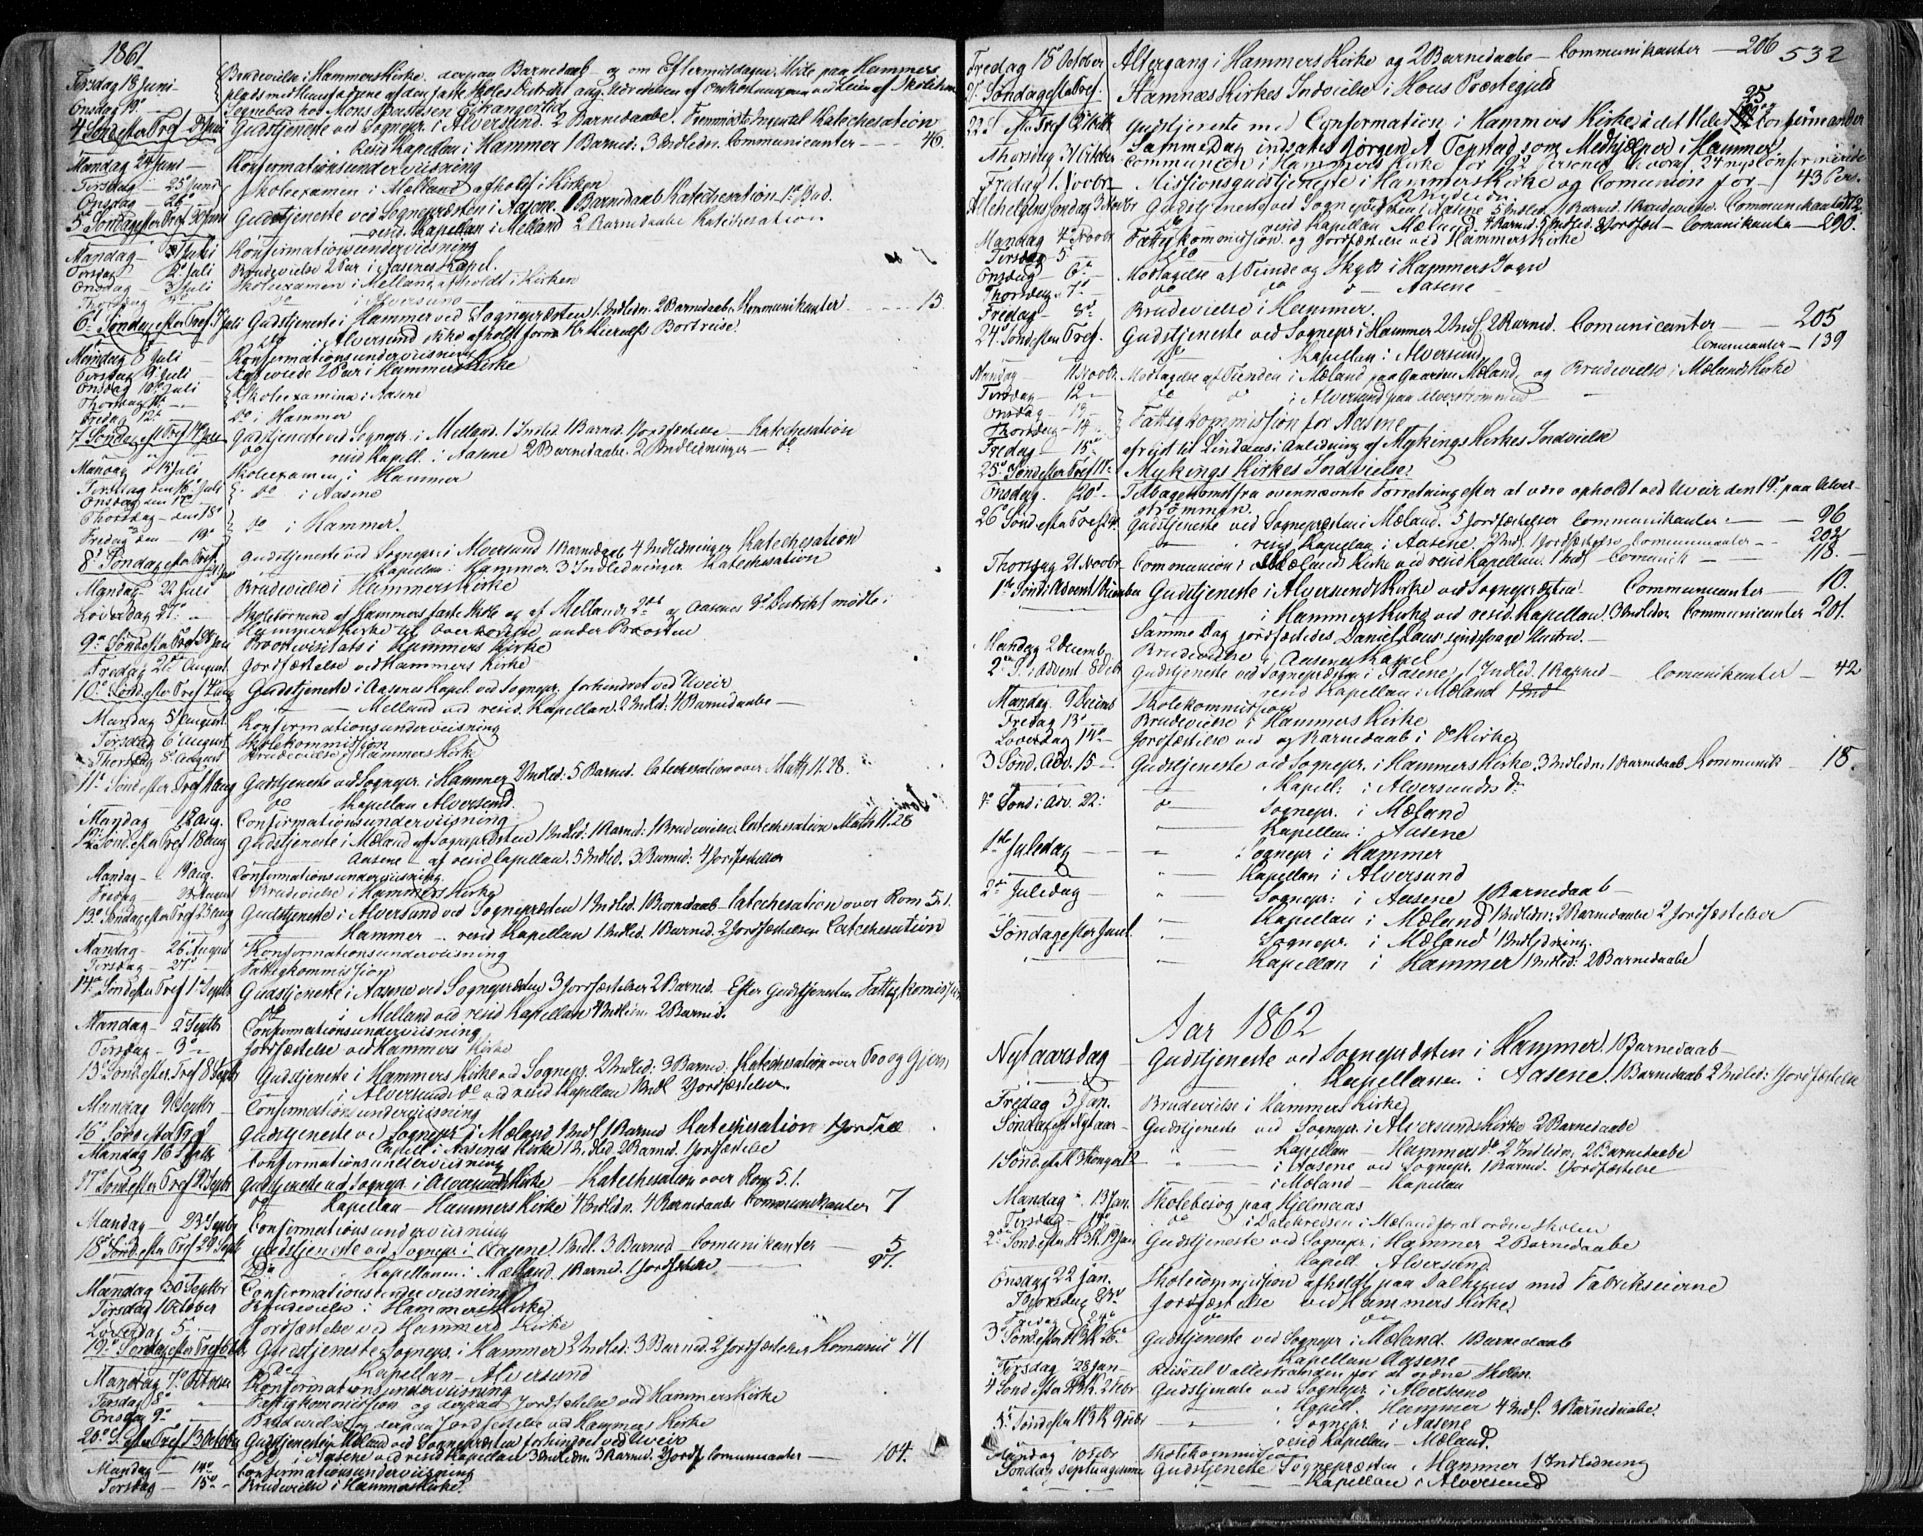 1861
Tirsdag 18 Juni – Brudevielse i Hammers Kirke, derpaa Barnedaab – og om Eftermiddagen Møde paa Hammers
Onsdag 19de
Sognebud hos Mons Baastsen
4 Sønd efter Tref 23 Juni Gudstjeneste ved Sognepr. i Alversund. 2 Barnedaabe. Katechesation
resid Kapellan i Hammer 1 Barned: 3 Indledn. Communicanter – – – 46.
Mandag 24 Juni – Konfirmationsunderviisning
Tirsdag – 25 Juni Skoleexamen i Mælland afholdt i Kirken
Onsdag – 26
5 Søndag efter Tref 30 Juni Gudstjeneste ved Sognepræsten i Aasene. 1 Barnedaab Katechesation
resid. Kapellan i Mælland 2 Barnedaabe Katechesation
Mandag – Juli Konfirmationsunderviisning
Tirsdag 2 Juli Brudevielse 2 Par i Aasenes Kapel.
Onsdag – 3 Juli Skoleexamen i Mælland afholdt i Kirken
Thorsdag i Alversund
6te Søndag efter Tref. 7 Juli Gudstjeneste i Hammer ved Sognepræsten 1 Indledn. 2 Barnedaabe Kommunikanter – – – 15
i Alversund ikke afholdt form Bortreise.
Mandag 8 Juli – Konfirmationsunderviisning
Tirsdag 9 Juli – Ægteviede 2 Par i Hammers Kirke
Onsdag 10 Juli
Thorsdag 11 – Skoleexamina i Aasene
Fredag 12 do i Hammer
7 Søndag eft Tref 14 Juli Gudstjeneste ved Sognepr. i Mælland. 1 Indled. 1 Barned. 1 Jordfæstelse – Katechesation
do resid Kapell. i Aasene 2 Barnedaabe. 2 Indledninger – do
Mandag d 15 Juli Skoleexamen i Hammer
Tirsdag den 16 Juli do i Aasene
Onsdag den 17
Thorsdag – den 18 do i Hammer.
Fredag den – 19
8 Søndag efter Tref Gudstjeneste ved Sognepr. i Alversund 1 Barnedaab 4 Indledninger Katechesation
Kapellan i Hammer. 3 Indledninger. Katechesation
Mandag – 22 Juli Brudevielse i Hammers Kirke
Løverdag 27. – Skolebørnene af Hammers faste Skole og af Mællands 2det og Aasenes 3 Distrikt mødte i
Hammers Kirke til Overhørelse under Provsten
9de Sønd efter Tref 28 Juli Provstevisitats i Hammers Kirke
Fredag 2 August. Jordfæstelse ved Hammers Kirke
10de Sønd efter Tref 4 Aug Gudstjeneste i Aasenes Kapel ved Sognepr. forhindret ved Uveir
Mælland ved resid. Kapellan. 2 Indled. 4 Barnedaabe –
Mandag 5 August. Konfirmationsunderviisning
Tirsdag 6 August Skolekommission
Thorsdag 8 August Brudevielse i Hammers Kirke
11te Søndag efter Tref 11 Aug Gudstjeneste ved Sognepr. i Hammer 2 Indled: 5 Barned. Catechesation over Matth 11. 28.
do Kapellan Alversund.
Mandag 12 Aug. Confirmationsunderviisning
12te Søndefter Tref 18 Aug Gudstjeneste i Mæland af Sognepræsten 1 Indled. 1 Barned: 1 Brudevielse. Catechesation Math 11. 28
Aasene – af resid Capellan. 5 Indled. 3 Barned: 4 Jordfæstelser
Mandag – 19 aug. Confirmationsunderviisning.
Fredag – 23 August Brudevielse i Hammers Kirke
13de Søndag efter Tref 25 aug Gudstjeneste i Alversund ved Sognepræsten 1 Indled. 1 Barnedaab – Catechesation over Rom 5. 1.
Hammer – resid Capellan 1 Indled. 1 Barned. 2 Jordfæstelser. Catechesation
Mandag – 26 August Konfirmationsunderviisning
Tirsdag – 27 Fattigkommission
14de Sønd efter Tref 1 Septbr Gudstjeneste i Aasene ved Sognepræsten 3 Jordfæstelser 2 Barned. – Efter Gudstjenesten Fattigkomission
i Mælland ved resid Kapellan 4 Indledn. 2 Barned.
Mandag – 2 Septbr Confirmationsunderviisning
Tirsdag – 3 – Jordfæstelse ved Hammers Kirke
15 Søndefter Tref 8 Septbr Gudstjeneste i Hammers Kirke ved Sognepr. 2 Indled: 3 Barned: Katechesation over Tro og Gjern
i Alversunds do ved resid Kapellan 1 Indl. 2 Jordfæstelser
Mandag 9 Septbr – Confirmationsunderviisning
16 Sønd efter Tref Gudstjeneste ved Sognepr i Mæland 1 Indl. 1 Barned Katechesation 1 Jordfæs
Capell i Aasenes Kirke 1 Indled. 2 Barned. 1 Jordfæstelse
Mandag 16 Septbr Confirmationsunderviisning
17de Sønd efter Tref 22 Septbr Gudstjeneste ved Sognepr. i Alversunds Kirke – Katechesation over Rom 5. 1.
Kapellan – Hammers Kirke 4 Indledn. 4 Barnedaabe Communikanter 7
Mandag – 23 Septb Confirmationsunderviisning
18 Sønd efter Tref 29 Septb Gudstjeneste ved Sognepr i Aasene. 1 Indl. 3 Barned – Comunikanter – 5
do Kapellanen i Mælland. 1 Barned. 1 Jordfæstelse 97.
Mandag 30 Septbr Confirmationsunderviisning
Tirsdag 1 October Brudevielse i Hammers Kirke
Løverdag 5 – Jordfæstelse ved Hammers Kirke
19de Søndag efter Tref 6 Oct. Gudstjeneste Sognepr. i Hammer 2 Indled: 3 Barned. 2 Jordfæstelser Komunic 71
do Kapellan – Alversund
Mandag 7 October Konfirmationsunderviisning
Tirsdag 8 Fattigkomission og derpaa Jordfæstelse ved Hammers Kirke
Onsdag 9 – Brudevielse og derpaa Jordfæstelse ved Hammers Kirke
20de S. efter Tref 13 Octob Gudstjeneste i Mæland ved Sognepræsten forhindret ved Uveir
do i Aasene ved resid Kapellan 3 Indledn. 3 Barned. 2 Jordf. Communicanter – 104.
Mandag – 14 Confirmationsunderviisning
Tirsdag – 15 – Brudevielse i Hammers Kirke.
Fredag 18 October Altergang i Hammers Kirke og 2 Barnedaabe – Communikanter – 206 532
21 Søndag efter Tref. Hamnæs Kirkes Indvielse i Hous Præstegjeld
25
22 S. Gudstjeneste med Confirmation i Hammers Kirke Confirmander
Samme Dag indsattes Jørgen A Tepstad som Medhjælper i Hammer
Thorsdag 31 Oktbr Communion i Hammers Kirke for Personer, hvoraf 24 nyconfirmerede
Fredag 1 Novbr – Missionsgudstjeneste i Hammers Kirke og Comunion for – 43 Pers.
Allehelgens Søndag 3 Novbr Gudstjeneste ved Sognepræsten i Aasene 5 Indled. 1 Barned. 1 Brudevielse. Communikanter 112
resid Kapellan Mæland 4 Barned. 5 Indled. Jordfæst – Comunikanter – 290.
Mandag 4 Novbr Fattigkommission og Jordfæstelse ved Hammers Kirke
Tirsdag 5
Onsdag – 6 – Modtagelse af Tiende og Skyds i Hammers Sogn
Thorsdag – 7 – do do do – Aasene –
Fredag – 8 Brudevielse i Hammer.
24 Sønd efter Tref. Gudstjeneste ved Sognepr i Hammer 2 Indl 2 Barned. Comunicanter – – 205
do Kapellan i Alversund Comunicanter – 139
Mandag – 11 Novbr Modtagelse af Tienden i Mæland paa Gaarden Mæland, og Brudevielse i Mælands Kirke
Tirsdag – 12 – do do i Alversund paa Alverstrømmen –
Onsdag – 13 –
Thorsdag – 14 – Fattigkommission for Aasene
Fredag – 15 – afreist til Lindaas i Anledning af Mykings Kirkes Indvielse
25 Sønd efter Tref 17. Mykings Kirkes Indvielse.
Onsdag. 20. – Tilbagekomst fra ovennævnte Forretning efter at være opholdt ved Uveir den 19 paa Alver-
strømmen.
26 Sønd efter Tref 24. Gudstjeneste ved Sognepræsten i Mæland. 5 Jordfæstelser Communikanter: – 96
resid Kapellan i Aasene. 2 Ind. 1 Jordfæstelse Communicanter – – 202
Thorsdag 21 Novbr – Comunion i Mælands Kirke ved resid Kapellan. 1 Indl – Comunik – 118. –
1ste Sønd i Advent 1 Decembr Gudstjeneste i Alversunds Kirke ved Sogneprsten Communicanter – 10.
i Hammers Kirke ved resid. Kapellan. 3 Indledn. Communicanter 201.
Samme Dag jordfæstedes Daniel
Mandag 2 Decemb Brudevielse i Aasenes Kapel
2 S. i Advent 8 Decbr Gudstjeneste ved Sognepræsten i Aasene, 1 Indled. 1 Barned – Comunikanter – 42
resid Kapellan i Mæland
Mandag 9 Decmb Skolekommission
Fredag 13 – Brudevielse i Hammers Kirke
Løverdag 14 – Jordfæstelse ved og Barnedaab i do Kirke
3 Sønd. Adv. 15 – Gudstjeneste ved Sognepr. i Hammers Kirke. 3 Indledn. 1 Barnedaab Kommunik – 18.
Kapell: i Alversunds do
4 Sønd i Adv. 22: do Sognepr. i Mæland
Kapellan: Aasene
1ste Juledag – – Sognepr i Hammer
Kapellan i Alversund
2 Juledag – Sognepr: i Aasene 1 Barnedaab –
Kapellan i Mæland 1 Indledn: 2 Barnedaabe 2 Jordfæstelser
Søndag efter Juul. – Sognepr. i Mæland 1 Indledning.
Kapellan i Hammer 1 Indled: 2 Barnedaabe
Aar 1862
Nytaarsdag – Gudstjeneste ved Sognepræsten i Hammer. 1 Barnedaab –
Kapellanen i Aasene. 1 Barnedaab 2 Indled: 1 Jordfæstelse
Fredag 3 Jan. Brudevielse i Hammers Kirke
Søndag eft Nytaar – Gudstjeneste ved Sognepr. i Alversunds Kirke 2 Barnedaabe
Kapellan – Hammers do 2 Indledn. 2 Barnedaabe
1 Sønd eft H 3 Konger 12 – i Aasene ved Sognepr. 1 Barned. 1 Jordfæstelse
i Mæland – Kapellan
Mandag – 13 Jan. Skolebesøg paa Hjelmaas
Tirsdag – 14 do i Dalekredsen i Mæland for at ordne Skolen
2 Sønd efter H 3 K. 19 Jan Gudstjeneste ved Sognepr. i Hammer 2 Barnedaabe
Kapell. Alversund
Onsdag 22 Jan. Skolecommission afholdt paa Dalhuus med Fabrikseierne
Thorsdag 23 Jordfæstelse ved Hammers Kirke
Fredag 24 do do
3 Sønd efter H 3 K. 26 Gudstjeneste ved Sognepr i Mæland. 1 Barnedaab
Kapellan Aasene
Tirsdag 28 Jan – Reise til Vallestranden for at ordne Skolen.
4 Sønd efter H 3 K. 2 Febr. Gudstjeneste ved Sognepr. i Alversund
Kapell. Hammer 4 Indl. 3 Barnedaabe.
5 Sønd efter H 3 K 9 Febr – Sognepr. i Aasene
resid Kapellan – Mæland.
Mandag 10 Febr Skolekommission
Søndag Septuagesima Gudstjeneste Sognepræsten i Hammer 1 Indledning
Kapellan i Alversund